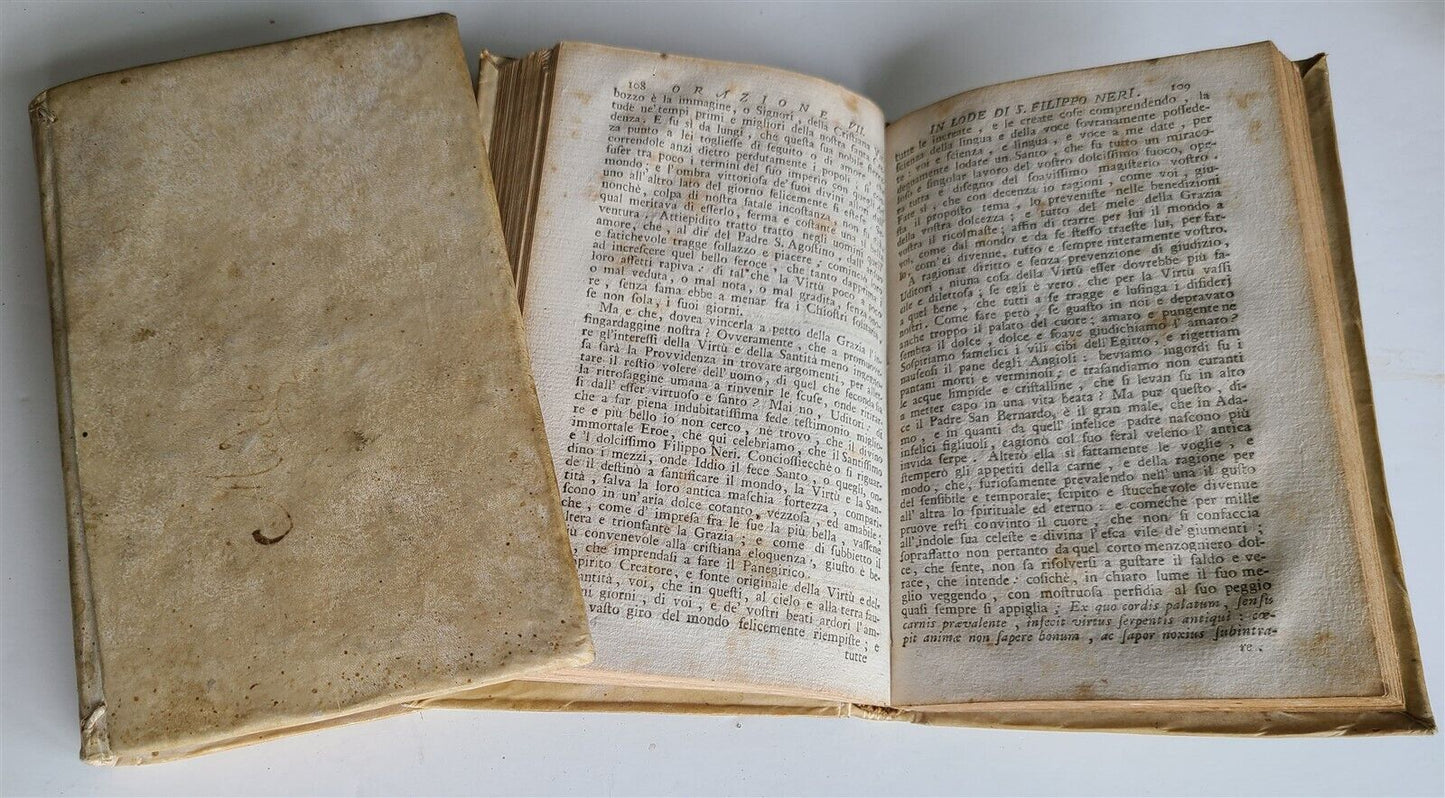 108 ORAZIONE VII.
bozzo è la immagine, o Signori, della Criſtiana
tude ne' tempi primi e migliori della noſtra
denza. E fu sì da lungi, che queſta ſua nobile
za punto a lei toglieſſe di ſeguito o di amore
correndole anzi dietro perdutamente i popoli,
fuſſer tra poco i termini del ſuo imperio con i
mondo; e l'ombra vittorioſa de' ſuoi divini
uno all'altro lato del giorno felicemente ſi eſteſe.
nonchè, colpa di noſtra fatale incoſtanza, non fu,
qual meritava di eſſerlo, ferma e coſtante una
ventura. Attiepidito tratto tratto negli uomini
amore, che, al dir del Padre S. Agoſtino, dall'
e fatichevole tragge ſollazzo e piacere, cominciò
ad increſcere quel bello feroce, che tanto dapprima i
loro affetti rapiva: di tal che la Virtù poco a poco
o mal veduta, o mal nota, o mal gradita, ſenza
re, ſenza fama ebbe a menar fra i Chioſtri
ſe non ſola, i ſuoi giorni.
Ma e che, dovea vincerla a petto della Grazia
fingardaggine noſtra? Ovveramente, che a promuove-
re gl'intereſſi della Virtù e della Santità meno ingegno-
ſa ſarà la Provvidenza in trovare argomenti, per
tare il reſtio volere dell'uomo, di quel che ſeconda ſia
la ritroſaggine umana a rinvenir le ſcuſe, onde ritirar-
ſi dall'eſſer virtuoſo e ſanto? Mai no, Uditori: di
che a far piena indubitatiſſima fede teſtimonio miglio-
re e più bello io non cerco, nè trovo, che il divino
immortale Eroe, che qui celebriamo, che il Santiſſimo
e 'l dolciſſimo Filippo Neri. Concioſſiecchè o ſi riguar-
dino i mezzi, onde Iddio il fece Santo, o quegli, on-
de il deſtinò a ſantificare il mondo, la Virtù e la San-
tità, ſalva la loro antica maſchia fortezza, compari-
ſcono in un'aria dolce cotanto, vezzoſa, ed amabile;
che, come d' impreſa fra le ſue la più bella, vaſſene
altera e trionfante la Grazia; e come di ſubbietto il
più convenevole alla criſtiana eloquenza, giuſto è be-
, che imprendaſi a fare il Panegirico.
Spirito Creatore, e fonte originale della Virtù e del-
Santità, voi, che in queſti, al cielo e alla terra fau-
giorni, di voi, e de' voſtri beati ardori l'am-
vaſto giro del mondo felicemente riempiſte; e
tutte
IN LODE DI S. FILIPPO NERI. 109
tutte le increate, e le create coſe comprendendo, la
ſcienza della lingua e della voce ſovranamente poſſede-
te; voi e ſcienza, e lingua, e voce a me date, per
degnamente lodare un Santo, che fu tutto un miraco-
loſo e ſingolar lavoro del voſtro dolciſſimo fuoco, ope-
ra tutta e diſegno del ſoaviſſimo magiſterio voſtro.
Fare sì, che con decenza io ragioni, come voi, giu-
ſta il propoſto tema, lo preveniſte nelle benedizioni
della voſtra dolcezza; e tutto del mele della Grazia
voſtra il ricolmaſte; affin di trarre per lui il mondo a
voi, come dal mondo e da ſe ſteſſo traeſte lui, per far-
lo, com'ei divenne, tutto e ſempre interamente voſtro.
A ragionar diritto e ſenza prevenzione di giudizio,
Uditori, niuna coſa della Virtù eſſer dovrebbe più fa-
cile e dilettoſa; ſe egli è vero, che per la Virtù vaſſi
a quel bene, che tutti a ſe tragge e luſinga i diſiderj
noſtri. Come fare però, ſe guaſto in noi e depravato
anche troppo il palato del cuore; amaro e pungente ne
ſembra il dolce, dolce e ſoave giudichiamo l'amaro?
Soſpiriamo famelici i vili cibi dell'Egitto, e rigettiam
nauſeoſi il pane degli Angioli: beviamo ingordi ſu i
pantani morti e verminoſi; e traſandiamo non curanti
le acque limpide e criſtalline, che ſi levan ſu in alto
a metter capo in una vita beata? Ma pur queſto, di-
ce il Padre San Bernardo, è il gran male, che in Ada-
mo, e in quanti da quell' infelice padre naſcono più
infelici figliuoli, cagionò col ſuo feral veleno l' antica
invida ſerpe. Alterò ella sì fattamente le voglie, e
ſtemperò gli appetiti della carne, e della ragione per
modo, che, furioſamente prevalendo nell'una il guſto
del ſenſibile e temporale; ſcipito e ſtucchevole divenne
all'altra lo ſpirituale ed eterno: e comeche per mille
pruove reſti convinto il cuore, che non ſi confaccia
all'indole ſua celeſte e divina l'eſca vile de' giumenti;
ſopraffatto non pertanto da quel corto menzogniero dol-
ce, che ſente, non ſa riſolverſi a guſtare il ſaldo e ve-
race, che intende: coſichè, in chiaro lume il ſuo me-
glio veggendo, con moſtruoſa perfidia al ſuo peggio
quaſi ſempre ſi appiglia; Ex quo cordis palatum, ſenſu
carnis prævalente, inſecit virtus ſerpentis antiqui: cœ-
pit animæ non ſapere bonum, ac ſapor noxius ſubintra-
re.